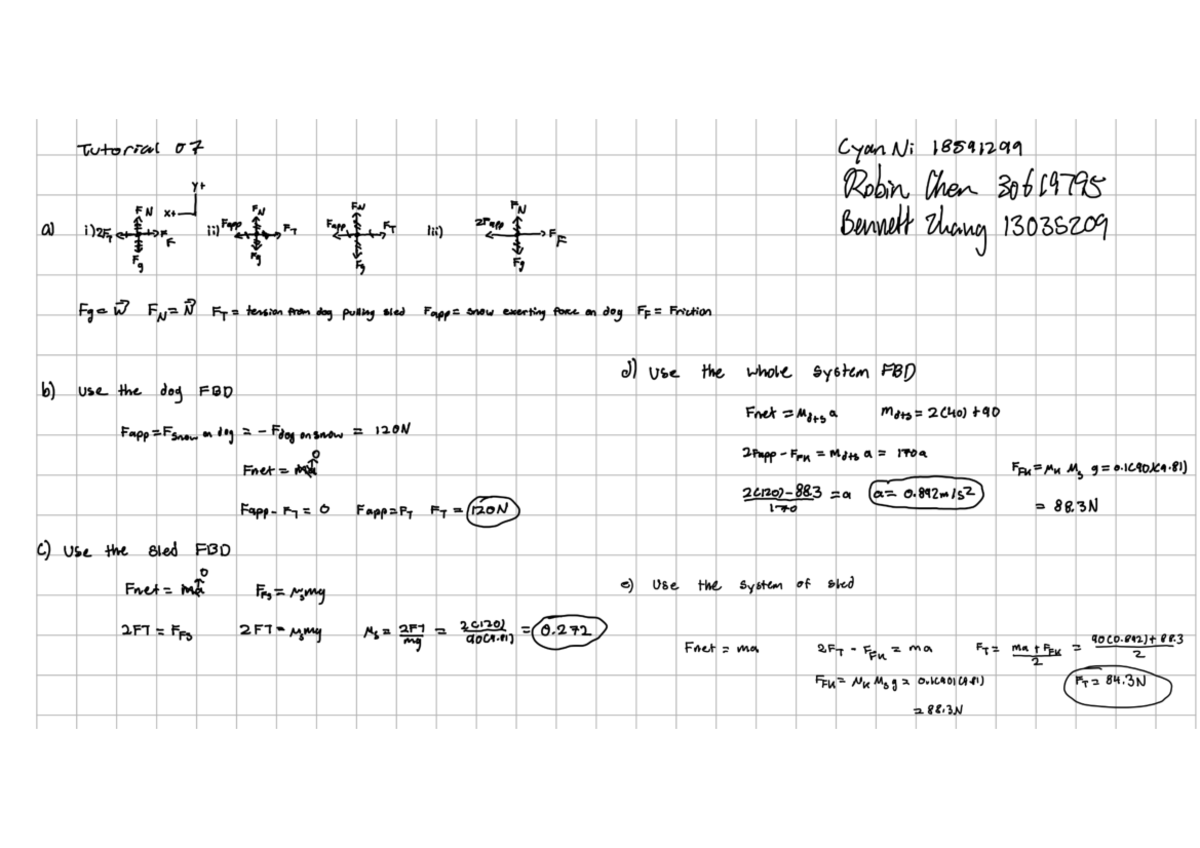 Tutorial 07
Cyan Ni 18591299
Robin Chen 30619795
Bennett Zhang 13035209
Y+
X+
a) i) 2F_T F_N F_F F_g ii) Fapp F_N F_T F_g Fapp F_N F_T F_g iii) 2Fapp F_N F_F F_g
Fg = W⃗ F_N = N⃗ F_T = tension from dog pulling sled Fapp = snow exerting force on dog F_F = Friction
b) Use the dog FBD
Fapp = F_snow on dog = -F_dog on snow = 120N
Fnet = ma 0
Fapp - F_T = 0 Fapp = F_T F_T = 120N
c) Use the sled FBD
Fnet = ma 0 F_Fs = μ_s mg
2FT = F_Fs 2FT = μ_s mg μ_s = 2FT/mg = 2(120)/90(9.81) = 0.272
d) Use the whole system FBD
Fnet = M_d+s a M_d+s = 2(40) + 90
2Fapp - F_FK = M_d+s a = 170a
F_FK = μ_K M_s g = 0.1(90)(9.81)
= 88.3N
2(120) - 88.3 / 170 = a a = 0.892 m/s²
e) Use the system of sled
Fnet = ma 2F_T - F_FK = ma F_T = ma + F_FK / 2 = 90(0.892) + 88.3 / 2
F_FK = μ_K M_s g = 0.1(90)(9.81)
= 88.3N
F_T = 84.3N